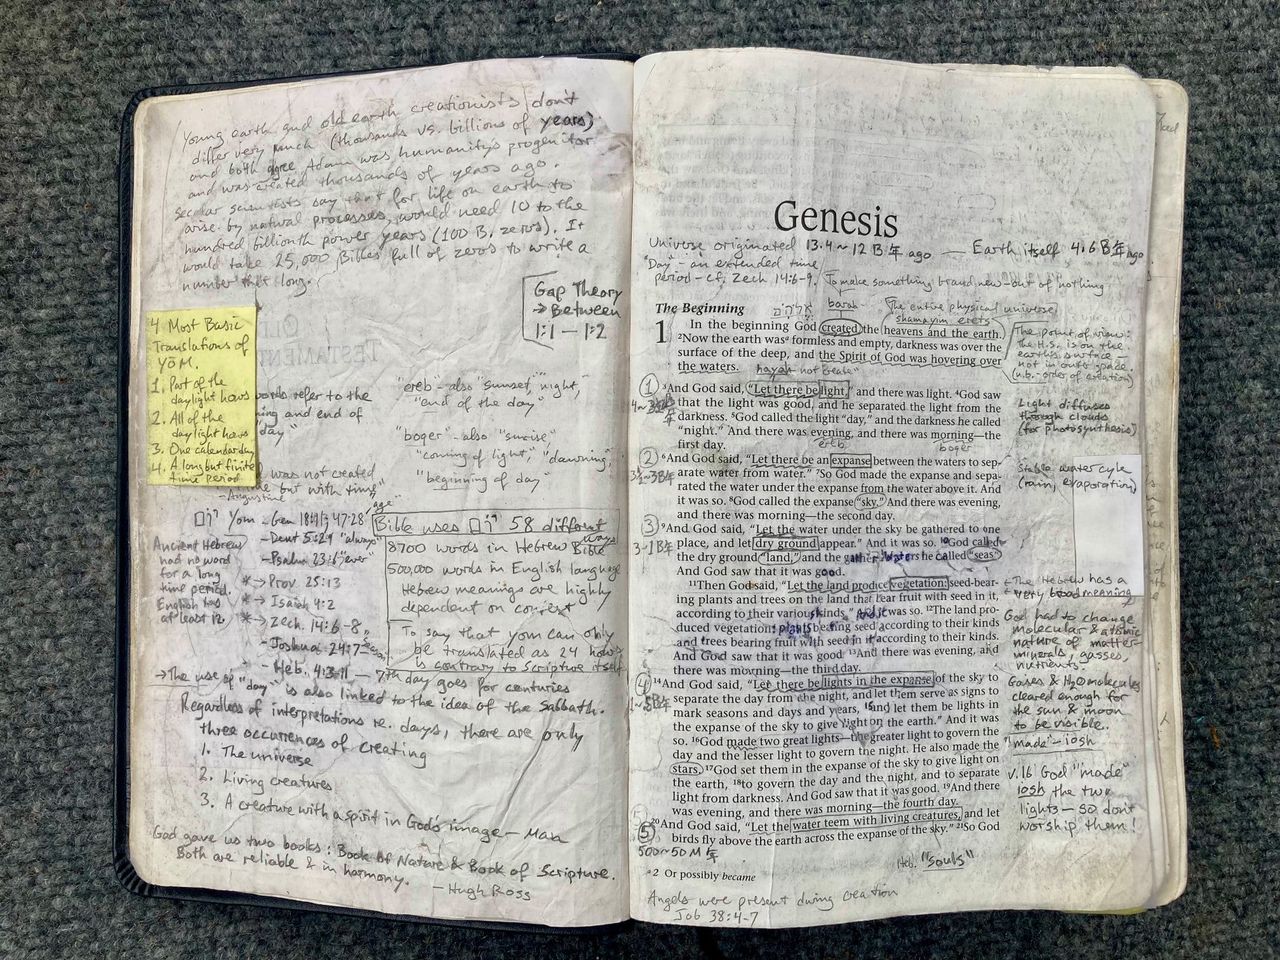 Young earth and old earth creationists don't
differ very much (thousands vs. billions of years)
and both agree Adam was humanity's progenitor
and was created thousands of years ago.
Secular scientists say that for life on earth to
arise by natural processes, would need 10 to the
hundred billionth power years (100 B. zeros). It
would take 25,000 Bibles full of zeros to write a
number that long.
Gap Theory
→ Between
1:1 – 1:2
4 Most Basic
Translations of
YŌM.
1. Part of the
daylight hours
2. All of the
daylight hours
3. One calendar day
4. A long but finite
time period
words refer to the
and end of
day"
"ereb" - also "sunset," "night,"
"end of the day"
"boger" - also "sunrise",
"coming of light," "dawning,"
"beginning of day
was not created
but with time"
- Augustine
יום Yom - Gen 47:28 "age"
- Deut 5:29 "always"
- Psalm 23:6 "ever"
* → Prov. 25:13
→ Isaiah 4:2
* → Zech. 14:6-8
- Joshua 24:7
- Heb. 4:3-11 — 7th day goes for centuries
Ancient Hebrew
had no word
for a long
time period.
English has
at least 12.
Bible uses יום 58 different ways
8700 words in Hebrew Bible
500,000 words in English language
Hebrew meanings are highly
dependent on context
To say that yom can only
be translated as 24 hours
is contrary to Scripture itself
→ The use of "day" is also linked to the idea of the Sabbath.
Regardless of interpretations re. days, there are only
three occurrences of creating
1. The universe
2. Living creatures
3. A creature with a spirit in God's image - Man
God gave us two books: Book of Nature & Book of Scripture.
Both are reliable & in harmony.
- Hugh Ross
Genesis
Universe originated 13.4 ~ 12 B年 ago — Earth itself 4.6 B年 ago
"Day" - an extended time
period - cf. Zech 14:6-9.
To make something brand new - out of nothing
barah
The entire physical universe
shamayim erets
The Beginning
אלהים
1 In the beginning God created the heavens and the earth.
²Now the earth was ᵃ formless and empty, darkness was over the
surface of the deep, and the Spirit of God was hovering over
the waters.
hayah not create"
The point of view:
the H.S. is on the
earth's surface -
not in outer space.
(n.b. - order of creation)
① ³And God said, "Let there be light," and there was light. ⁴God saw
that the light was good, and he separated the light from the
darkness. ⁵God called the light "day," and the darkness he called
"night." And there was evening, and there was morning—the
first day.
ereb
boger
Light diffuses
through clouds
(for photosynthesis)
② ⁶And God said, "Let there be an expanse between the waters to sep-
arate water from water." ⁷So God made the expanse and sepa-
rated the water under the expanse from the water above it. And
it was so. ⁸God called the expanse "sky." And there was evening,
and there was morning—the second day.
Stable water cycle
(rain, evaporation)
③ ⁹And God said, "Let the water under the sky be gathered to one
place, and let dry ground appear." And it was so. ¹⁰God called
the dry ground "land," and the gathered waters he called "seas."
And God saw that it was good.
3-1 B年
¹¹Then God said, "Let the land produce vegetation: seed-bear-
ing plants and trees on the land that bear fruit with seed in it,
according to their various kinds." And it was so. ¹²The land pro-
duced vegetation: plants bearing seed according to their kinds
and trees bearing fruit with seed in it according to their kinds.
And God saw that it was good. ¹³And there was evening, and
there was morning—the third day.
← The Hebrew has a
very broad meaning
God had to change
molecular & atomic
nature of matter-
minerals, gasses,
nutrients.
④ ¹⁴And God said, "Let there be lights in the expanse of the sky to
separate the day from the night, and let them serve as signs to
mark seasons and days and years, ¹⁵and let them be lights in
the expanse of the sky to give light on the earth." And it was
so. ¹⁶God made two great lights—the greater light to govern the
day and the lesser light to govern the night. He also made the
stars. ¹⁷God set them in the expanse of the sky to give light on
the earth, ¹⁸to govern the day and the night, and to separate
light from darkness. And God saw that it was good. ¹⁹And there
was evening, and there was morning—the fourth day.
Gases & H2O molecules
cleared enough for
the sun & moon
to be visible.
"made" - iosh
v.16 God "made"
iosh the two
lights - so don't
worship them!
⑤ ²⁰And God said, "Let the water teem with living creatures, and let
birds fly above the earth across the expanse of the sky." ²¹So God
500~50 M年
Heb. "souls"
ᵃ2 Or possibly became
Angels were present during creation
Job 38:4-7